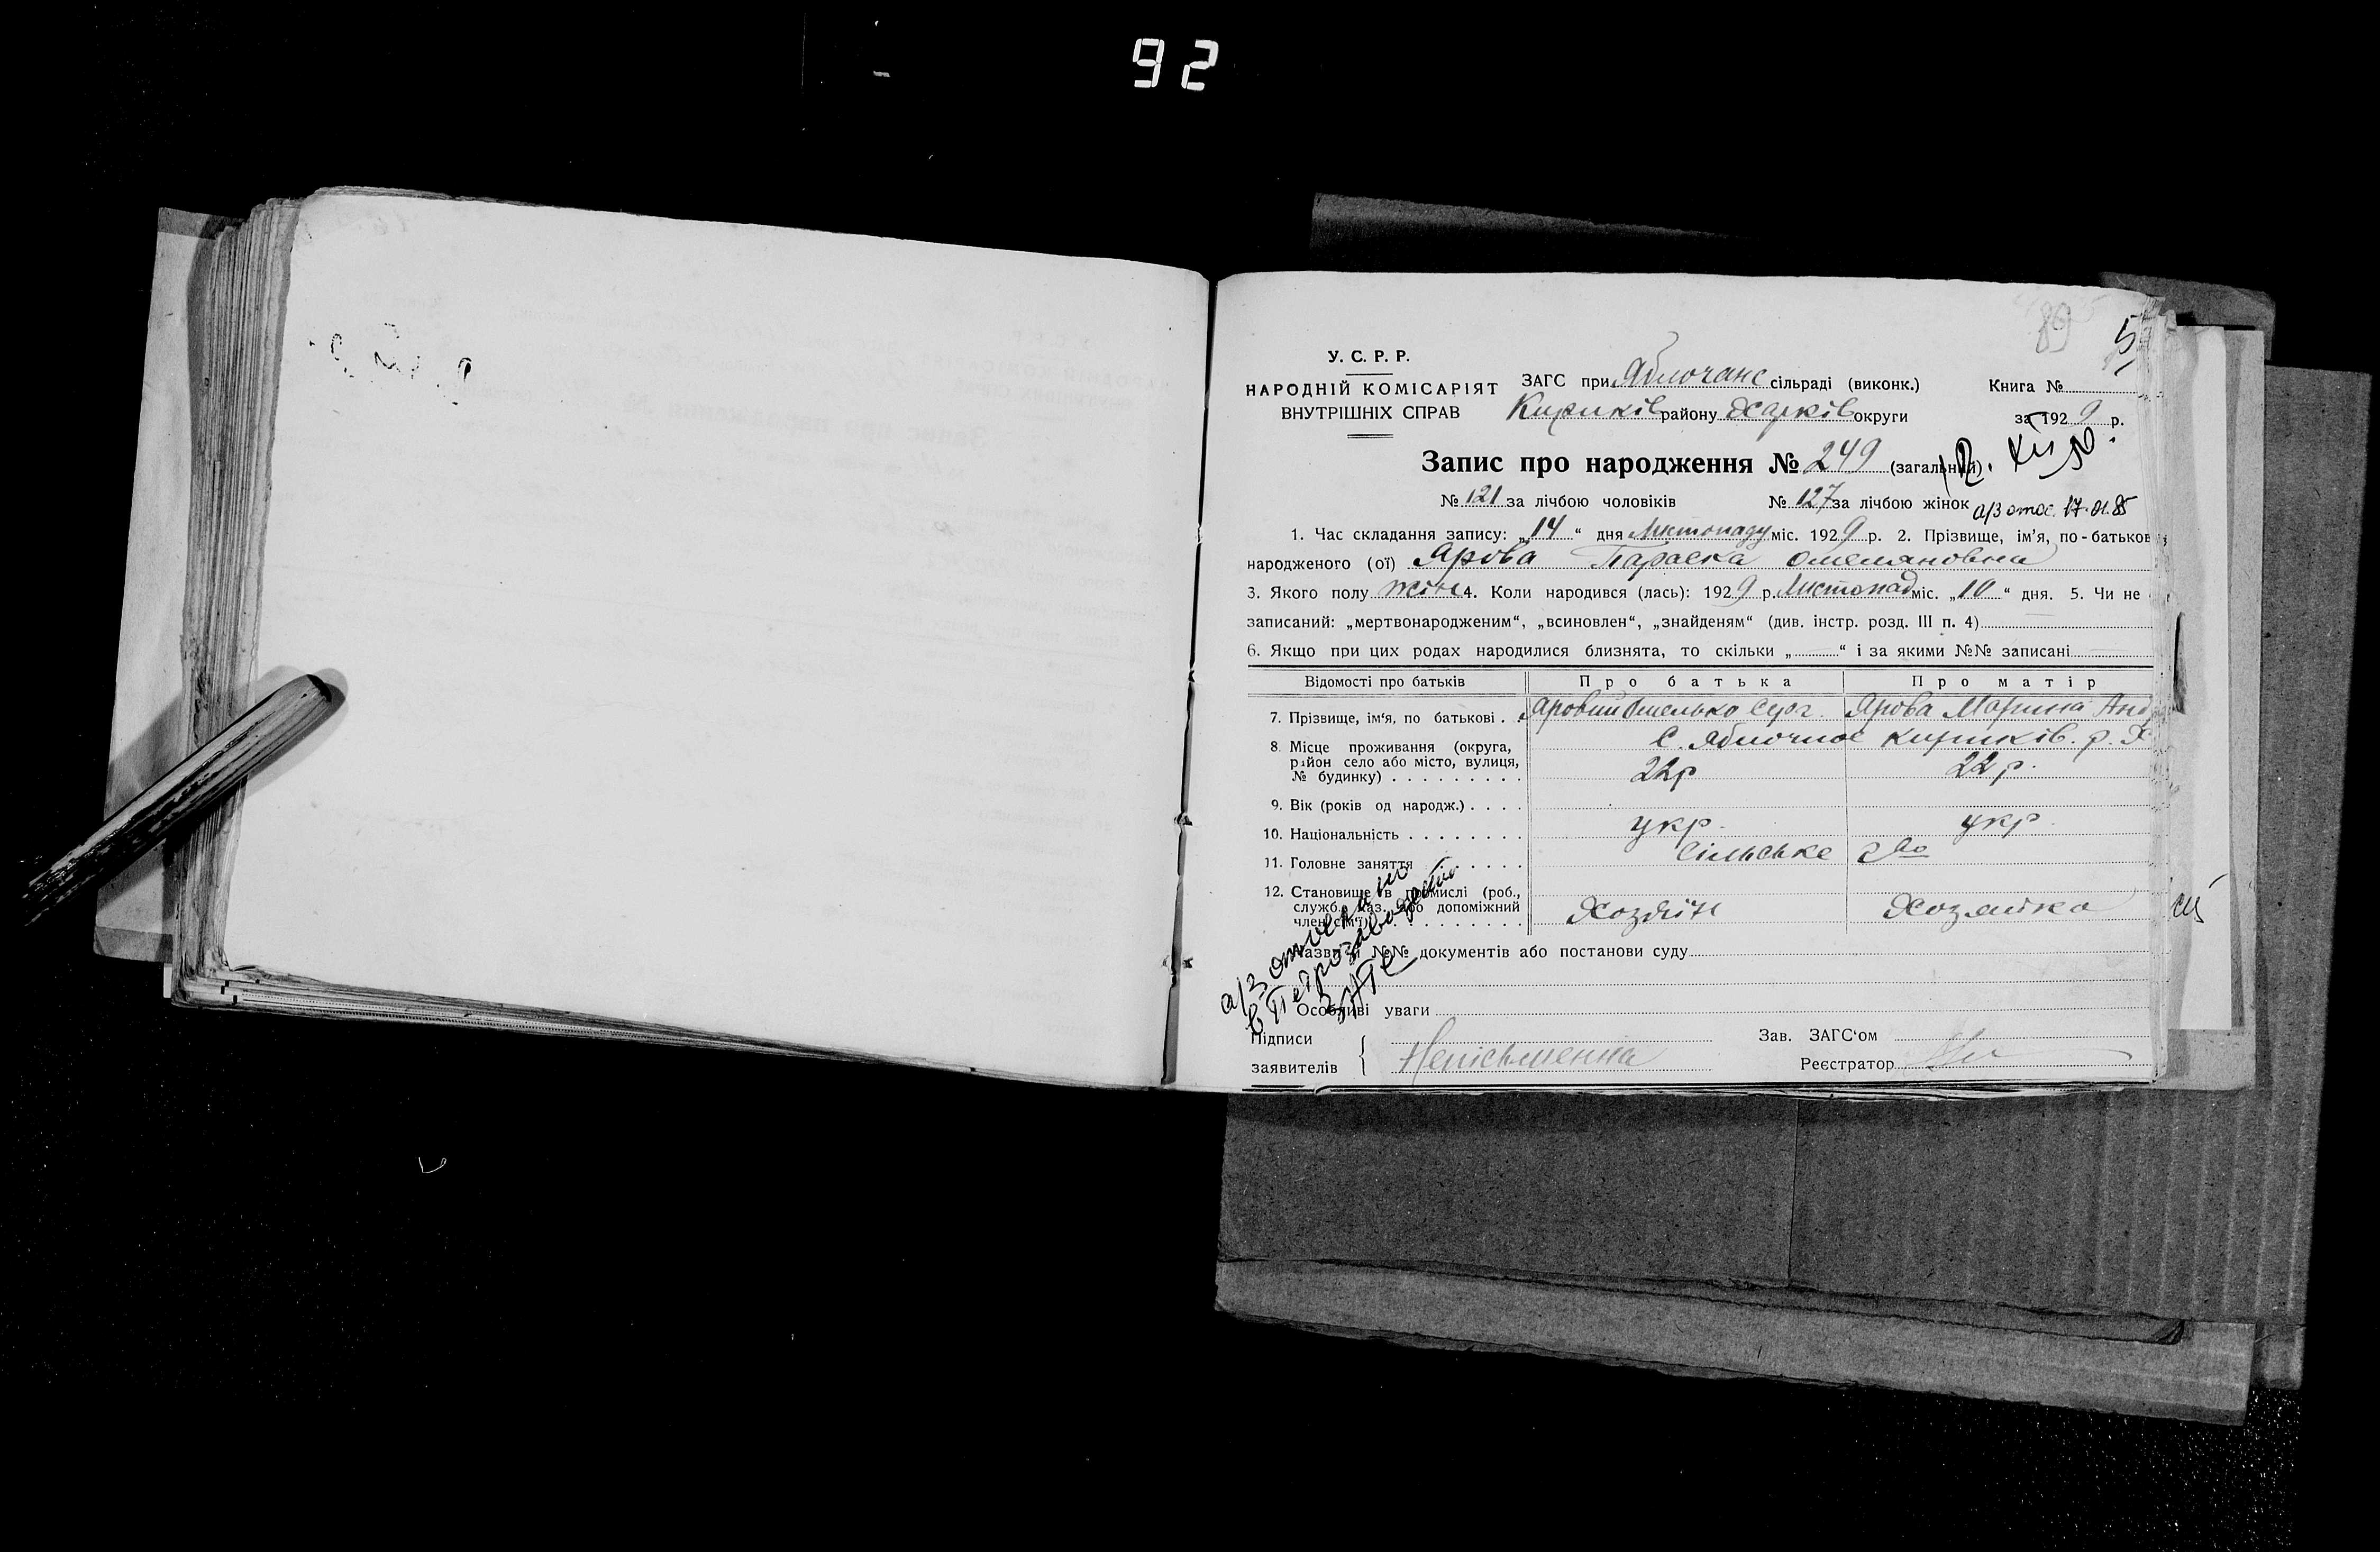 92
89
5
У. С. Р. Р.
НАРОДНІЙ КОМІСАРІЯТ
ВНУТРІШНІХ СПРАВ
ЗАГС при Яблочанс сільраді (виконк.)
Кириків району Харків округи
Книга №
за 1929 р.
Запис про народження № 249 (загальний)
№ 121 за лічбою чоловіків № 127 за лічбою жінок
а/з отос. 17.01.85
1. Час складання запису: „14“ дня Листопаду міс. 1929 р. 2. Прізвище, ім'я, по-батьков
народженого (ої) Ярова Параска Омеляновна
3. Якого полу жін 4. Коли народився (лась): 1929 р. Листопад міс. „10“ дня. 5. Чи не
записаний: „мертвонародженим“, „всиновлен“, „знайденям“ (див. інстр. розд. III п. 4)
6. Якщо при цих родах народилися близнята, то скільки „ “ і за якими №№ записані
Відомості про батьків Про батька Про матір
7. Прізвище, ім'я, по батькові . Яровий Омелько Ярова Марина Анд
8. Місце проживання (округа,
район село або місто, вулиця,
№ будинку)
С. Яблочное Кириків. р. Х
22р 22 р.
9. Вік (років од народж.)
10. Національність
укр. укр
11. Головне заняття
Сільське г-во
12. Становище в промислі (роб.,
служб., хаз. або допоміжний
член сім'ї)
Хозяїн Хозяйка
Назви й №№ документів або постанови суду
а/з отослан
в Петрозаводский
ЗАГС
Особливі уваги
Підписи
заявителів
Неписьменна
Зав. ЗАГС'ом
Реєстратор